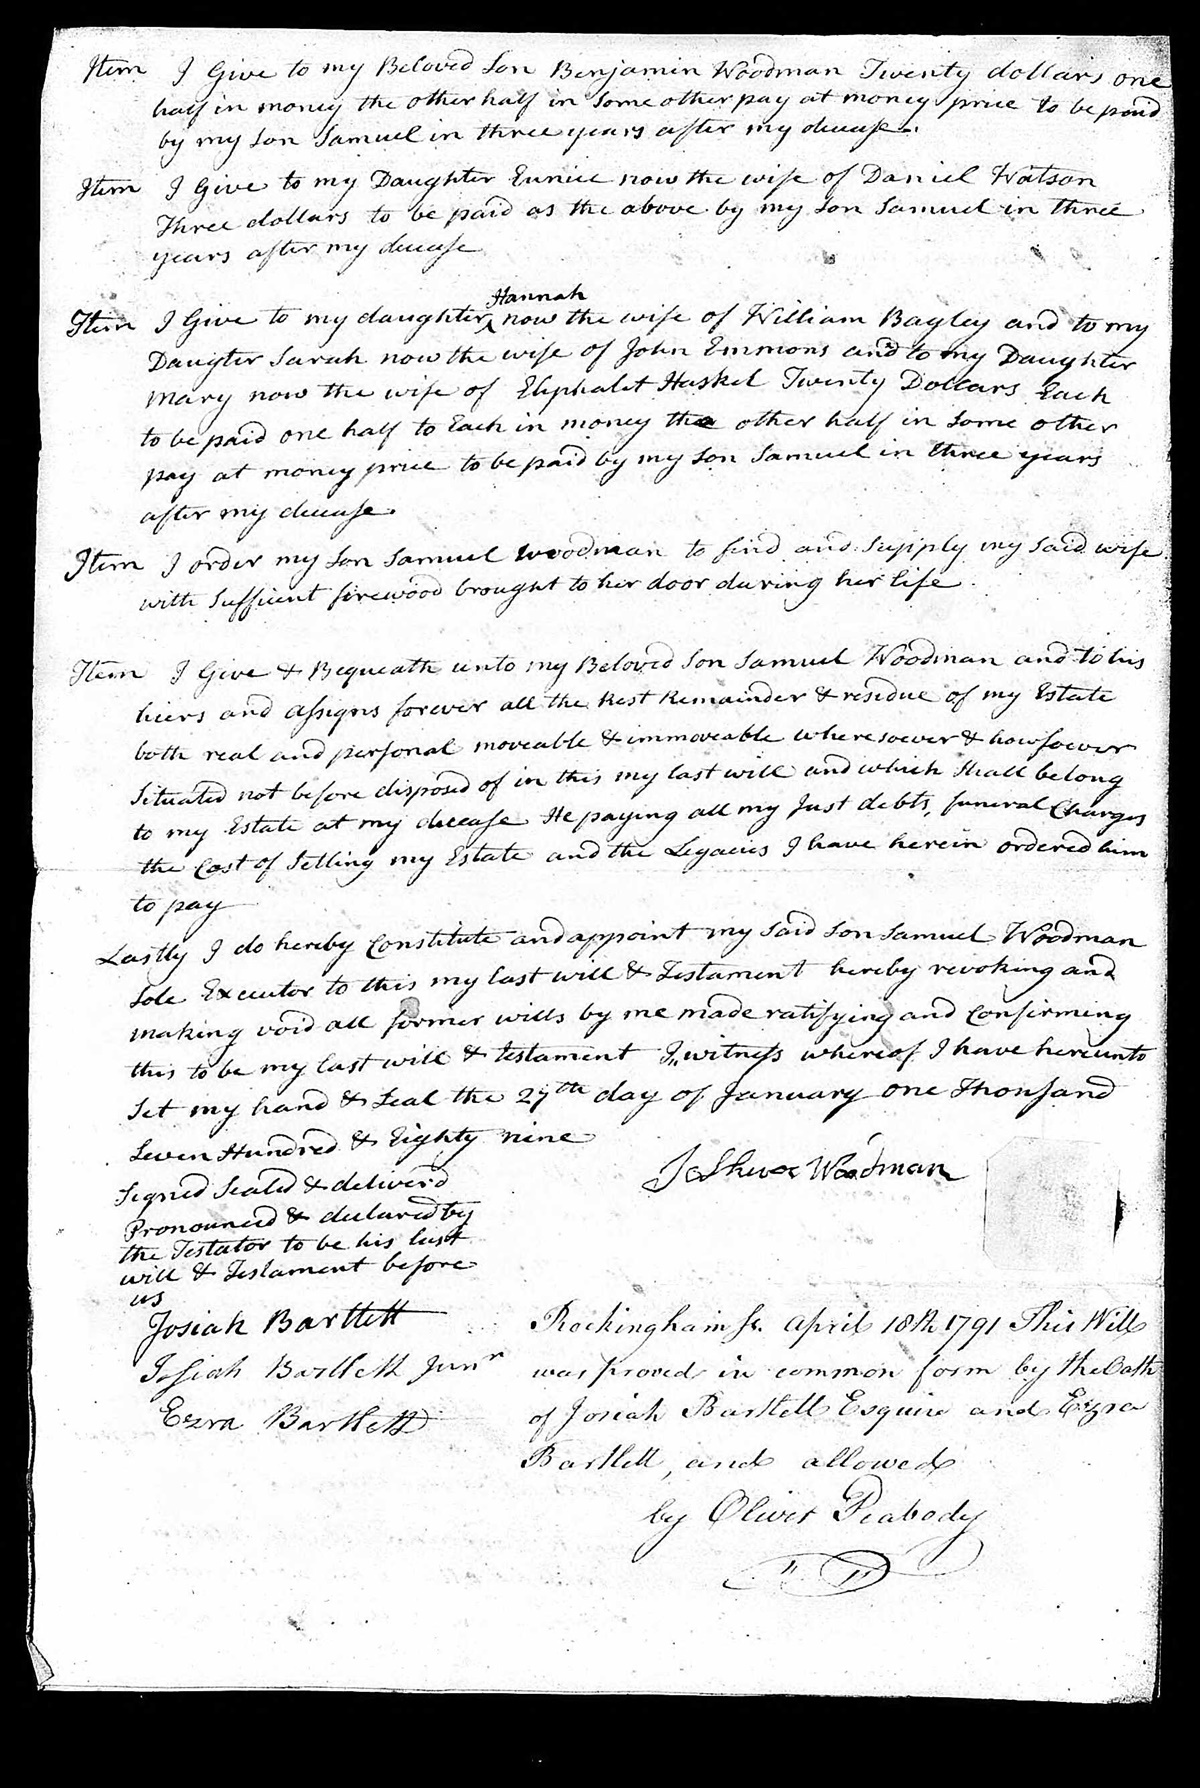 Item I Give to my Beloved Son Benjamin Woodman Twenty dollars one
half in money the other half in Some other pay at money price to be paid
by my Son Samuel in three years after my decease.
Item I Give to my Daughter Eunice now the wife of Daniel Watson
Three dollars to be paid as the above by my Son Samuel in three
years after my decease
Hannah
Item I Give to my daughter ^ now the wife of William Bagley and to my
Daugter Sarah now the wife of John Emmons and to my Daughter
Mary now the wife of Eliphalet Haskel Twenty Dollars Each
to be paid one half to Each in money the other half in Some other
pay at money price to be paid by my Son Samuel in three years
after my decease.
Item I order my Son Samuel Woodman to find and Supply my Said wife
with Sufficient firewood brought to her door during her life.
Item I Give & Bequeath unto my Beloved Son Samuel Woodman and to his
hiers and assigns forever all the Rest Remainder & residue of my Estate
both real and personal moveable & immoveable wheresoever & howsoever
Situated not before disposed of in this my last will and which Shall belong
to my Estate at my decease He paying all my Just debts, funeral Charges
the Cost of Setling my Estate and the Legacies I have herein ordered him
to pay
Lastly I do hereby Constitute and appoint my Said Son Samuel Woodman
Sole Executor to this my last will & Testament hereby revoking and
making void all former wills by me made ratifying and Confirming
this to be my last will & testament In witness whereof I have hereunto
Set my hand & Seal the 27th day of January one Thousand
Seven Hundred & Eighty nine
Joshua Woodman
Signed Sealed & deliverd
Pronounced & declared by
the Testator to be his last
will & Testament before
us
Josiah Bartlett
Josiah Bartlett Junr
Ezra Bartlett
Rockingham Ss. April 18th 1791 This Will
was proved in common form by the Oath
of Josiah Bartlett Esquire and Ezra
Bartlett, and allowed
by Oliver Peabody